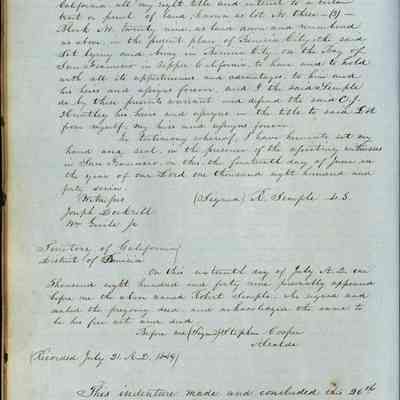 California, all my right title and interest to a certain
tract or parcel of land, known as lot No. three (3)
Block No. Twenty nine, as laid down and numbered
as above, in the present plan of Benicia City, the said
Lot lying and being in Benicia City on the Bay of
San Francisco in Upper California, to have and to hold
with all its appurtenances and advantages, to him and
his heirs and assigns forever, and I the said Semple
do by these presents warrant and defend the said C. J.
Huntley his heirs and assigns in the title to said Lot
from myself, my heirs and assigns forever.
In testimony whereof, I have hereunto set my
hand and seal, in the presence of the attesting witnesses
in San Francisco, on this the fourteenth day of June in
the year of our Lord one thousand eight hundred and
forty seven.
Witness (Signed) R. Semple L.S.
Joseph Dockrill
Wm
Territory of California
District of Benicia
On this sixteenth day of July A.D. one
Thousand eight hundred and forty nine, personally appeared
before me the above named Robert Semple, the signed and
sealed the foregoing deed, and acknowledged the same to
be his free act and deed.
Before me (Signed) Stephen Cooper
Alcalde
(Recorded July 21. A.D. 1849)
This indenture made and concluded this 20th